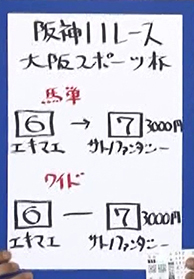 阪神11レース
大阪スポーツ杯
馬単
6 → 7 3000円
エキマエ サトノファンタシー
ワイド
6 ― 7 3000円
エキマエ サトノファンタシー